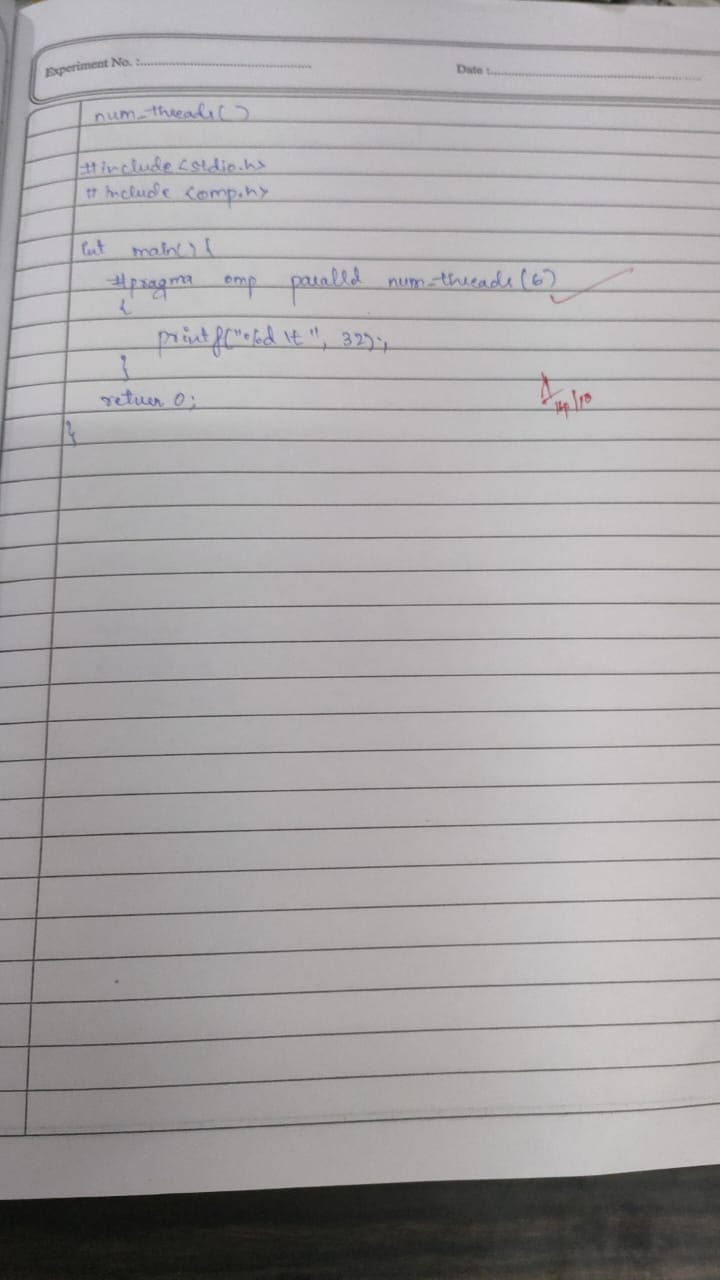 Experiment No. :
Date :
num_threads()
#include <stdio.h>
# include <omp.h>
int main() {
#pragma omp parallel num_threads (6)
{
printf("%d \t ", 32);
}
retuen 0;
}